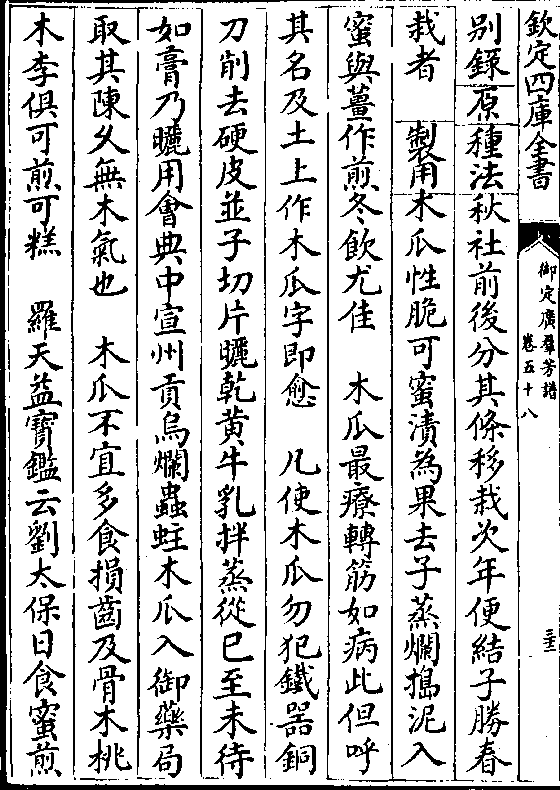 欽定四庫全書
御定廣羣芳譜
卷五十八
三十二
別錄原種法秋社前後分其條移栽次年便結子勝春
栽者　製用木瓜性脆可蜜漬為果去子蒸爛搗泥入
蜜與薑作煎冬飲尤佳　木瓜最療轉筋如病此但呼
其名及土上作木瓜字即愈　凡使木瓜勿犯鐵器銅
刀削去硬皮並子切片曬乾黄牛乳拌蒸從巳至未待
如膏乃曬用會典中宣州貢烏爛蟲蛀木瓜入御藥局
取其陳久無木氣也　木瓜不宜多食損齒及骨木桃
木李俱可煎可糕　羅天益寶鑑云劉太保日食蜜煎